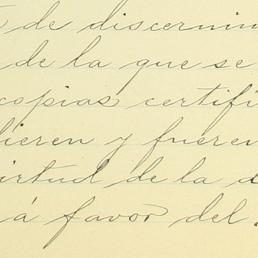 de discernim
de la que se
copias certifi
dieren y fueren
irtud de la d
á favor del